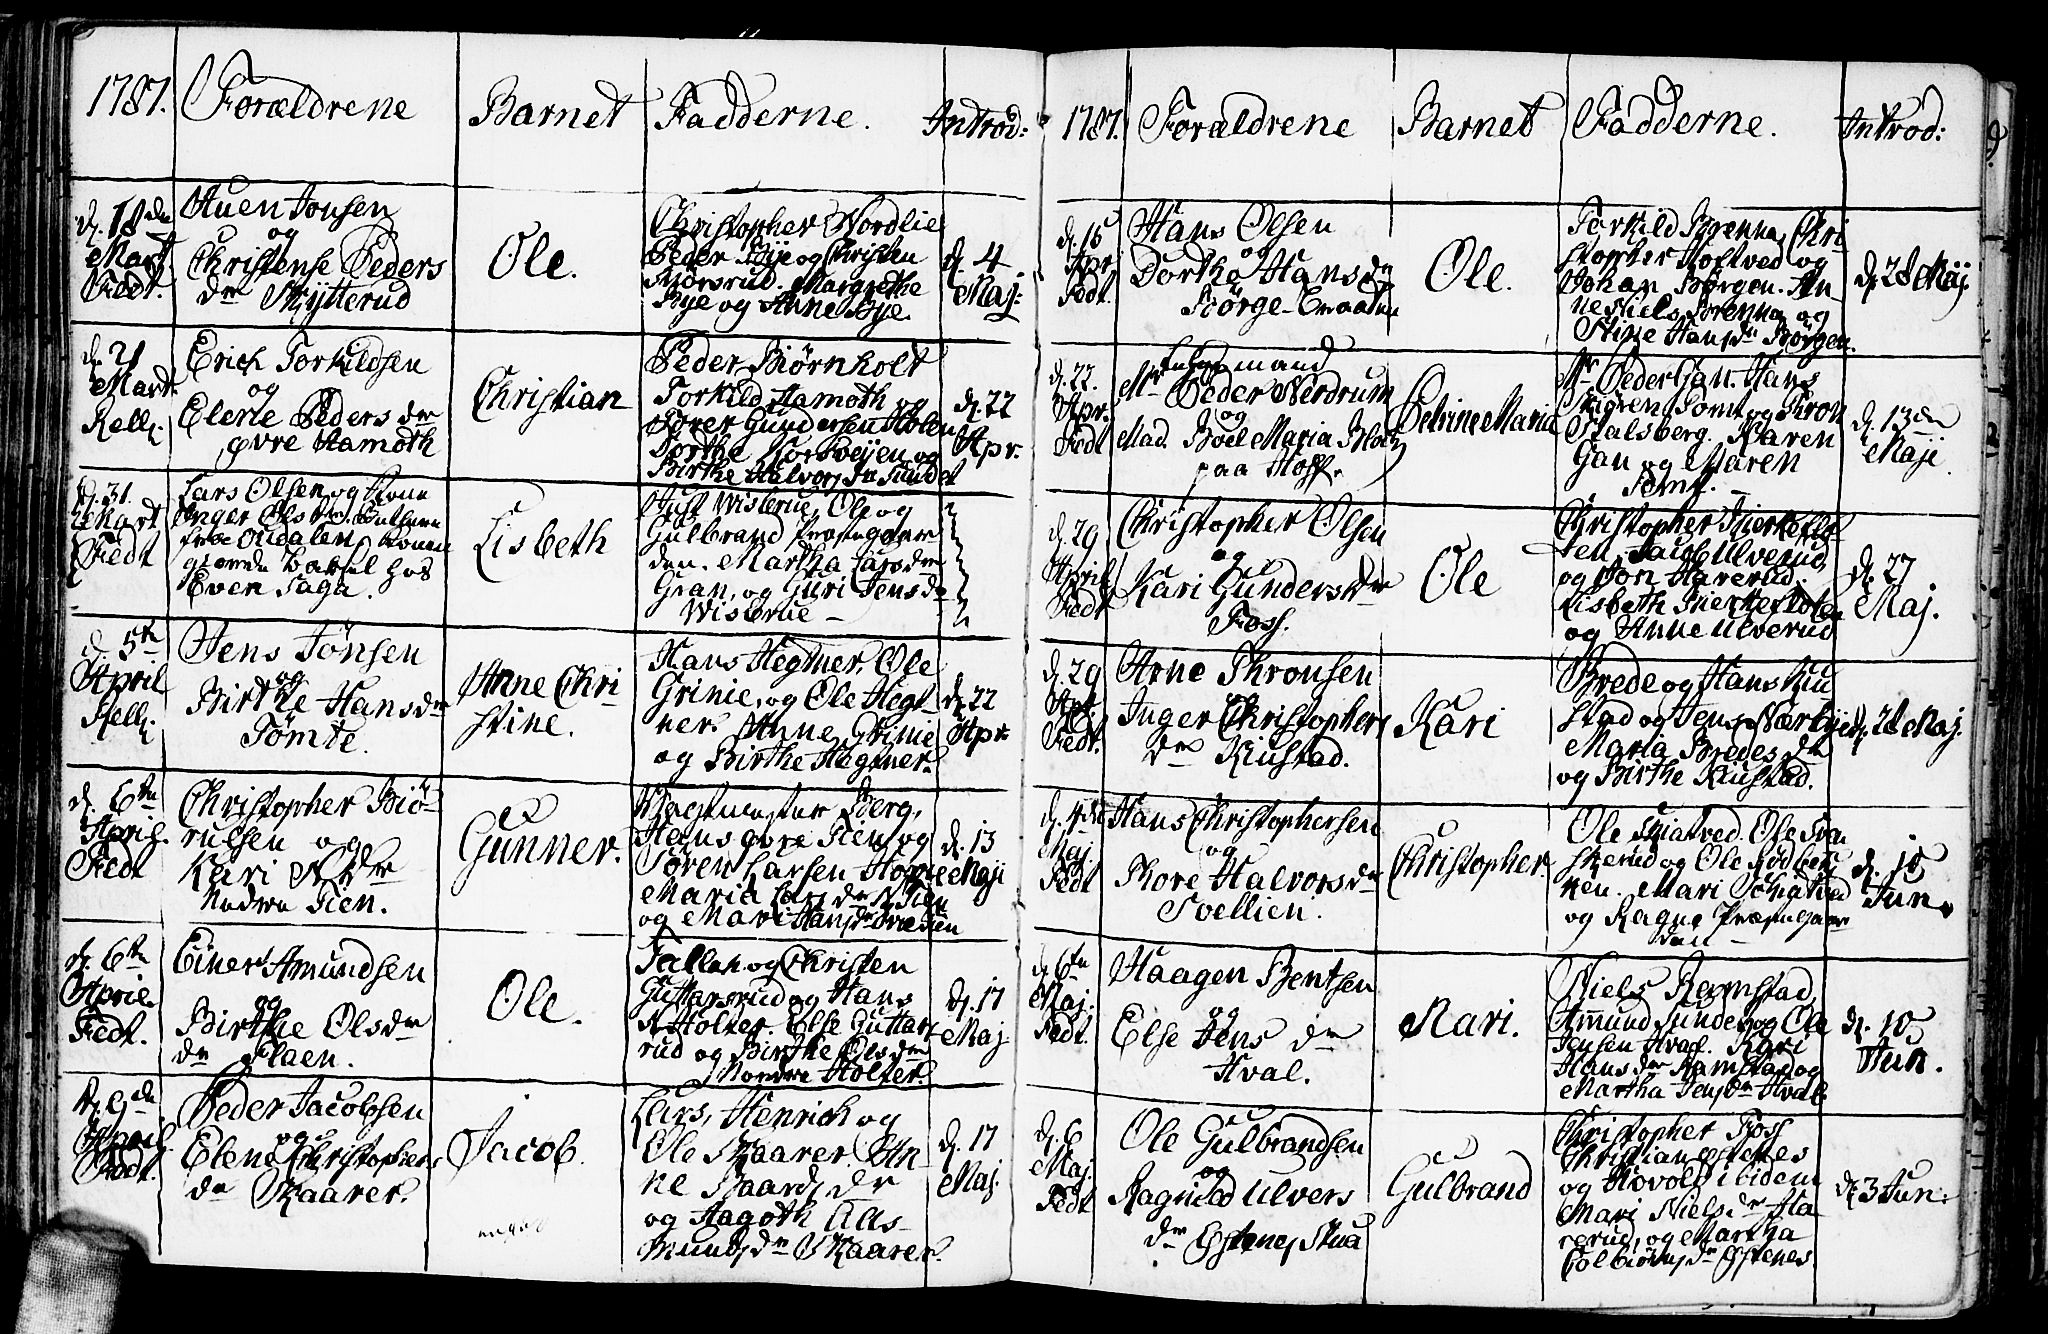 1787.
Forældrene
Barnet
Fadderne.
Introd:
d. 18de
Mart
Fedt.
Auen Jonsen
og
Christense Peders
dr Skytterud
Ole.
Christopher Nordlie
Peder Bye og Christen
Morsrud. Margrethe
Bye og Anne Bye.
d. 4
Maj:
d. 21
Mart.
Kelli
Erich Torkildsen
og
Elene Peders dr
øvre Hamoth
Christian
Peder Biørnholt
Torkild Hamoth og
Torer Gundersen Holen
Dorthe Korsveyen og
Birthe Halvors dr Sundet
d. 22
Apr.
d. 31
Mart
Fedt
Lars Olsen og Kone
Inger Ols dr
fra Oudalen, Konen
giorde Barsel hos
Even Saga.
Lisbeth
Just Wisterue, Ole og
Gulbrand Præstegaar
den. Martha Larsdr
Gran, og Guri Jensdr
Wisterue
d. 5te
April
Kelli
Jens Jónsen
og
Birthe Hansdr
Tømte.
Anne Chri
stine.
Hans Hegtner, Ole
Grinie, og Ole Hegt-
ner. Anne Grinie
og Birthe Hegtner.
d. 22
Apr.
d. 6te
April.
Fedt
Christopher Biö-
rulsen og
Kari N. dr
Nedre Tien.
Gunner.
Vagtmester Berg,
Hans øvre Tien og
Søren Larsen Hoppe
Maria Lars dr N. Tien
og Mari Hans dr
d. 13
Maji
d. 6te
April.
Fedt.
Einer Amundsen
og
Birthe Olsdr
dr Flaen.
Ole.
Tallak og Christen
Guttersrud og Hans
N. Holter. Else Gutters
rud og Birthe Olsdr
Nordre Holter.
d. 17
Maj.
d. 9de
April
Fedt.
Peder Jacobsen
og
Elene Christophers
dr Skaarer.
Jacob.
Lars, Henrich og
Ole Skaarer. An-
ne Baards dr
og Aagoth Aas-
munds dr Skaarer.
d. 17
Maj.
1787.
Forældrene
Barnet
Fadderne.
Introd:
d. 15
Apr.
Fedt.
Hans Olsen
og
Dorthe Hansdr
Børge-Eraaten
Ole.
Torkild Brenna, Chri
stopher Toftved og
Johan Børgen. An-
ne Niels Brenna og
Stine Hans dr Børgen.
d. 28 Maj.
d. 22.
Apr.
Fedt
Mr Peder Nerdrum
og
Mad. Boel Maria Blotz
paa Hoff.
Petrine Marie
Mr Peder Gan. Hans
Kiøren Tomt og Tron
Stalsberg. Karen
Gan og Maren
Tomt.
d. 13de
Maji
d. 29
April
Fedt
Christopher Olsen
og
Kari Gundersdr
Foss.
Ole
Christopher
ten, Jacob Ulverud,
og Jon Harerud.
Lisbeth
og Anne Ulverud
d. 27
Maj.
d. 29
Apr.
Fedt.
Arne Thronsen
og
Inger Christophers
dr Kiustad.
Kari
Brede og Hans Kiu
stad og Jens Nærbye
Maria Bredes dr
og Birthe Kiustad.
d. 28 Maj.
d. 4de
Maj.
Fedt
Hans Christophersen
og
Thore Halvorsdr
Svellien.
Christopher.
Ole Skiatved. Ole Sven
skerud og Ole Rødbek
ken. Mari Skiatved
og Ragne Præstegaar
den
d. 10
Jun.
d. 6te
Maj.
Fedt.
Haagen Bentsen
og
Else Jens dr
Hval.
Mari.
Niels Ramstad,
Amund Sundes og Ole
Jensen Hval. Kari
Hans dr Ramstad og
Martha Jens dr Hval.
d. 10
Jun.
d. 6
Maj.
Fedt
Ole Gulbrandsen
og
Ragnild Ulvers
dr Gstenes Stua
Gulbrand
Christopher Foss
Christian Gstenes
og Hovold ibidem
Mari Niels dr Ha-
rerud, og Martha
Colbiørns dr Gstenes
d. 3 Jun.